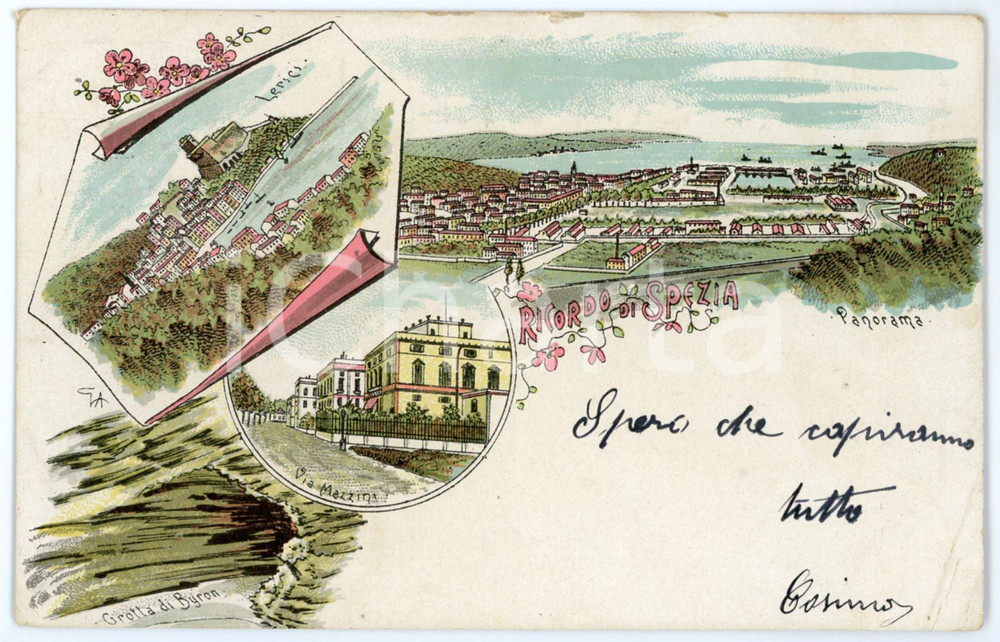 Lerici.
RICORDO DI SPEZIA
Panorama.
Via Mazzini
Grotta di Byron
GA
Spero che capiranno
tutto
Cosimo